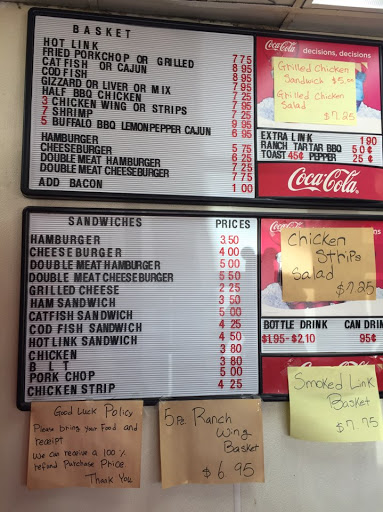 BASKET
HOT LINK 7 75
FRIED PORKCHOP OR GRILLED 8 95
CATFISH OR CAJUN 8 95
CODFISH 7 95
GIZZARD OR LIVER OR MIX 7 25
HALF BBQ CHICKEN 7 95
3 CHICKEN WING OR STRIPS 7 25
7 SHRIMP 9 95
5 BUFFALO BBQ LEMONPEPPER CAJUN 6 95
HAMBURGER 5 75
CHEESEBURGER 6 25
DOUBLE MEAT HAMBURGER 7 25
DOUBLE MEAT CHEESEBURGER 7 75
ADD BACON 1 00
Coca-Cola decisions, decisions
Grilled Chicken
Sandwich $5.00
Grilled Chicken
Salad
$7.25
EXTRA LINK 1 90
RANCH TARTAR BBQ 50¢
TOAST 45¢ PEPPER 25¢
Coca-Cola
SANDWICHES PRICES
HAMBURGER 3 50
CHEESEBURGER 4 00
DOUBLE MEAT HAMBURGER 5 00
DOUBLE MEAT CHEESEBURGER 5 50
GRILLED CHEESE 2 25
HAM SANDWICH 3 50
CATFISH SANDWICH 5 00
COD FISH SANDWICH 4 25
HOT LINK SANDWICH 4 50
CHICKEN 3 80
B L T 3 80
PORK CHOP 5 00
CHICKEN STRIP 4 25
Chicken
Strips
Salad
$7.25
BOTTLE DRINK CAN DRI
$1.95-$2.10 95¢
Good Luck Policy
Please bring your Food and
receipt
We can receive a 100 %
refund Purchase Price.
Thank You
5 Pc Ranch
Wing
Basket
$6.95
Smoked Link
Basket
$7.75